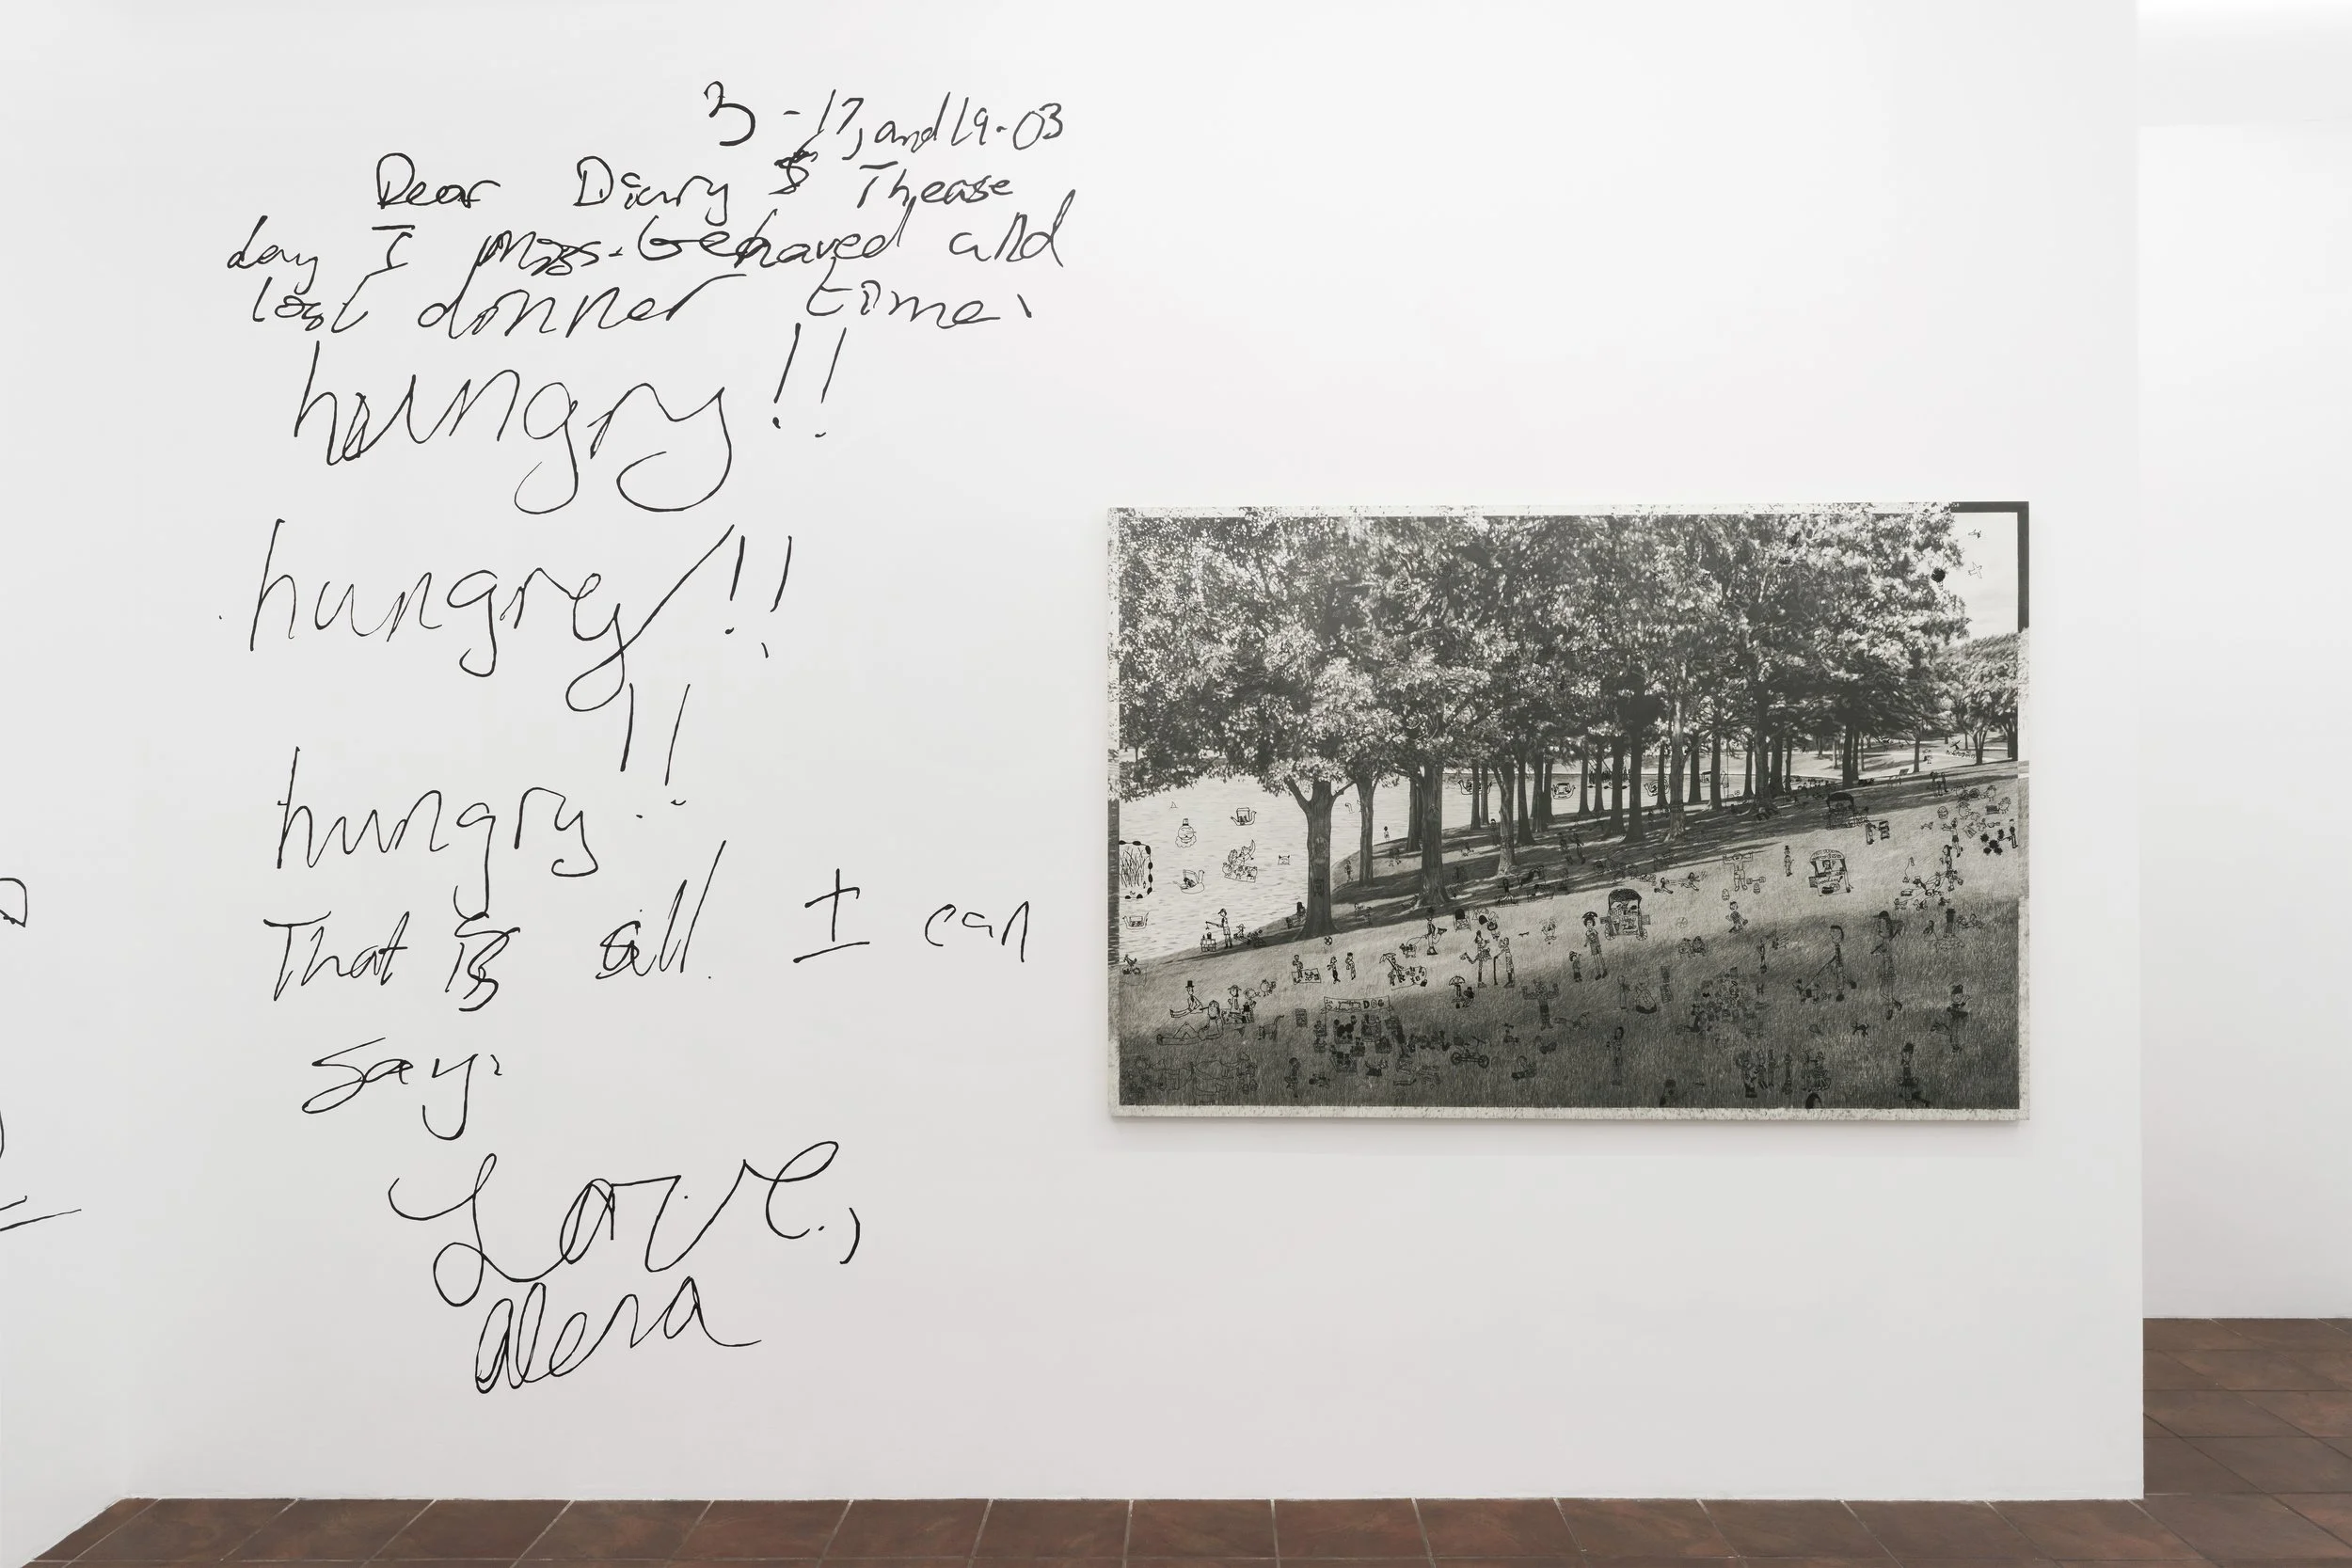 3-17, and 19-03
Dear Diary Thease
day I miss-behaved and
lost dinner time.
hungry!!
hungry!!
hungry!!
That is all I can
say.
Love,
alexa